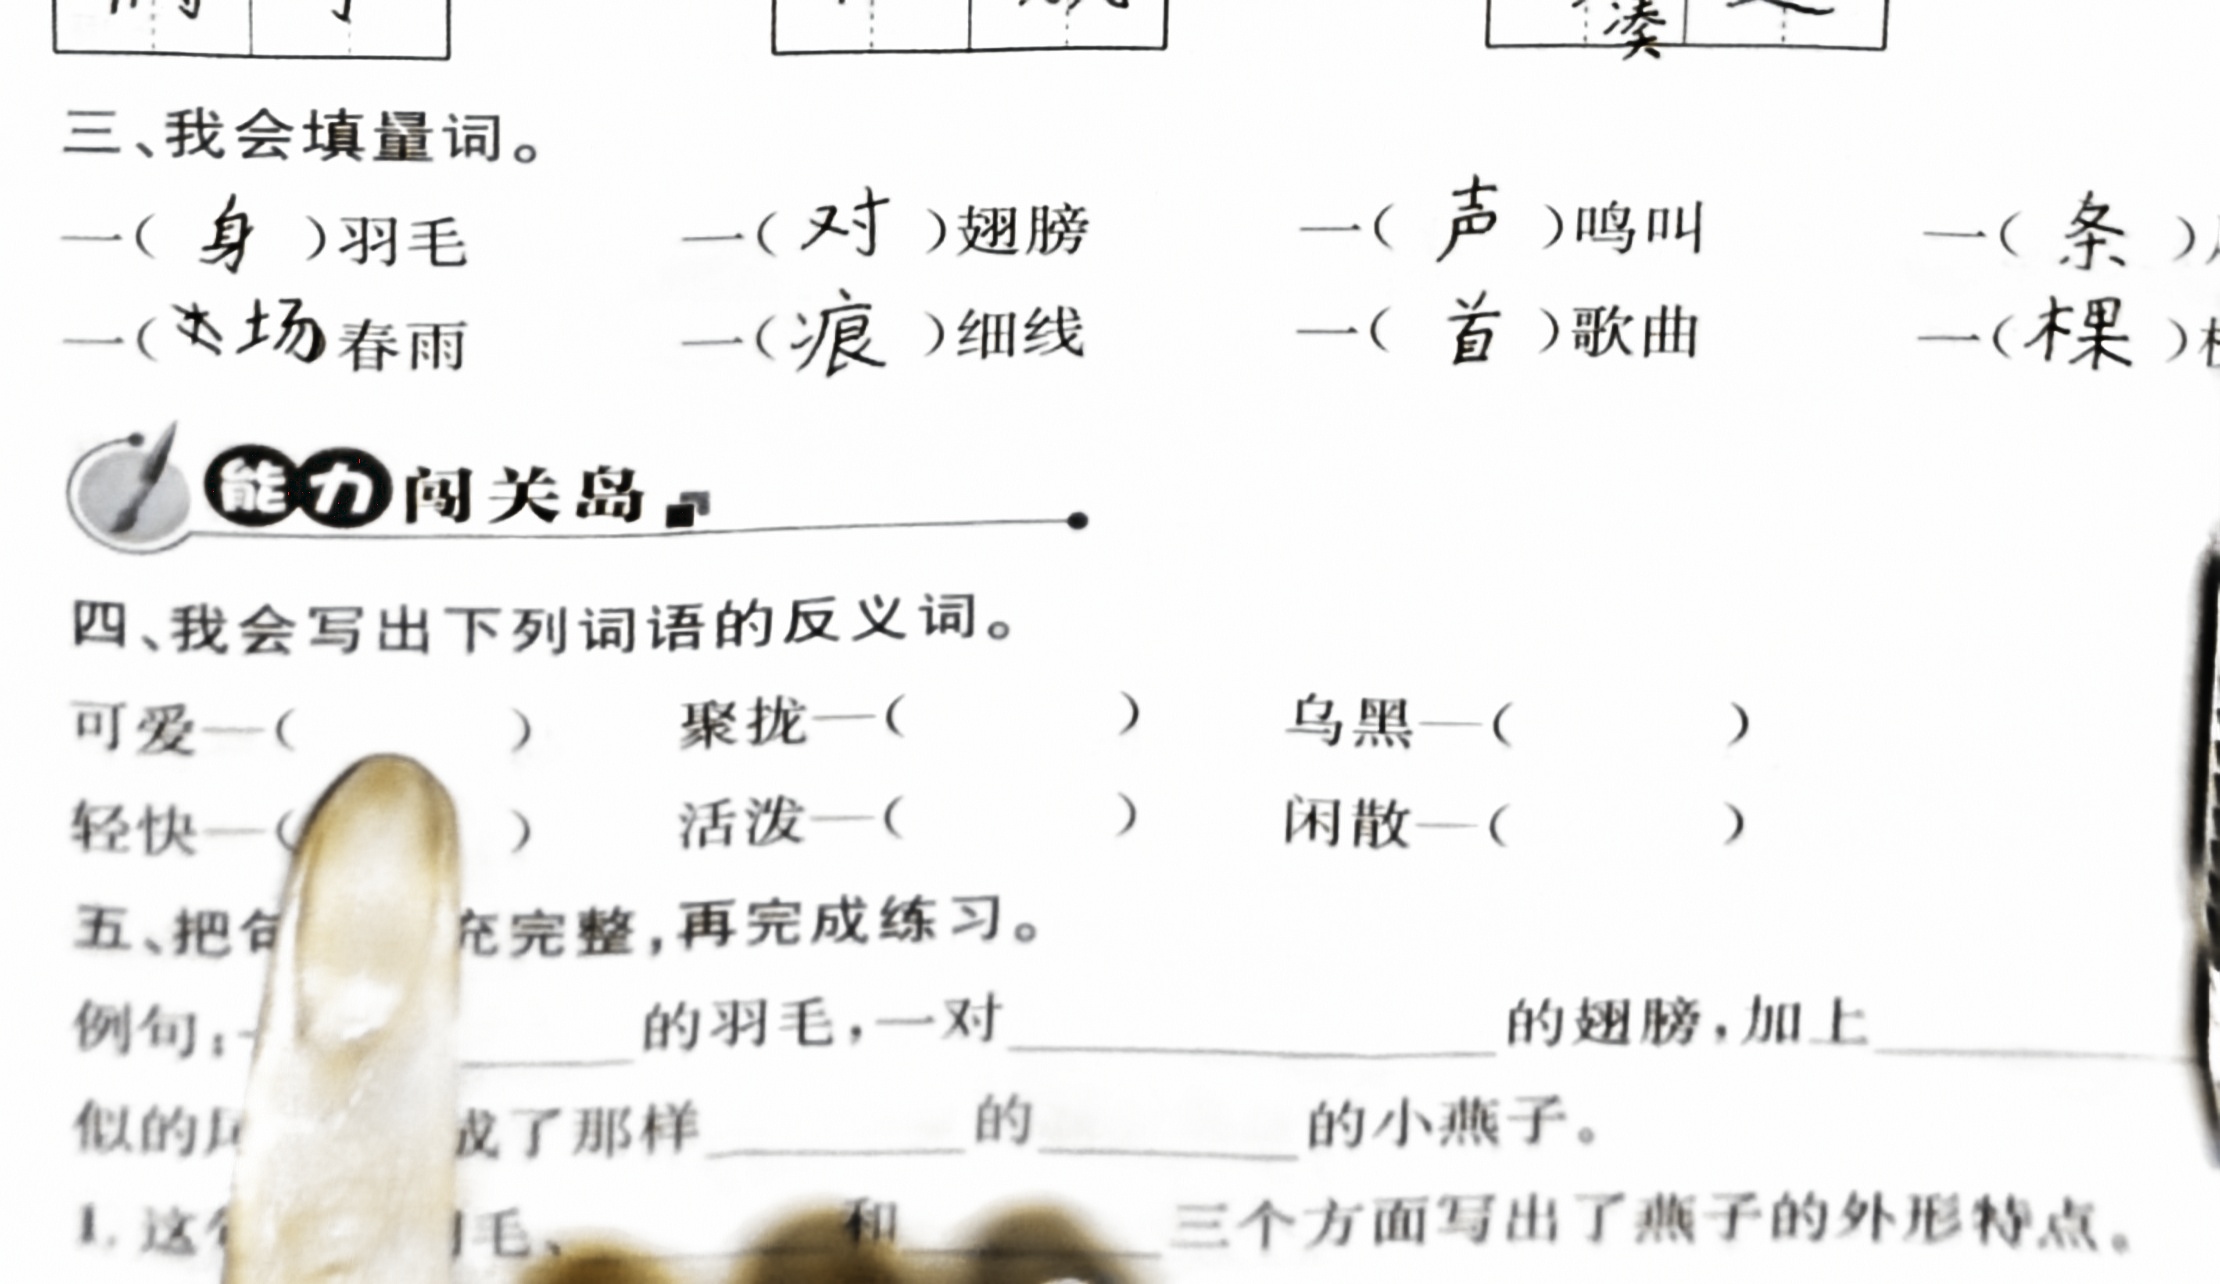 凑
三、我会填量词。
一(身)羽毛 一(对)翅膀 一(声)鸣叫 一(条)
一(场)春雨 一(痕)细线 一(首)歌曲 一(棵)
能力闯关岛
四、我会写出下列词语的反义词。
可爱—( ) 聚拢—( ) 乌黑—( )
轻快—( ) 活泼—( ) 闲散—( )
五、把句 充完整,再完成练习。
例句: 的羽毛,一对______的翅膀,加上______
似的 成了那样______的______的小燕子。
1. 这 毛、______和______三个方面写出了燕子的外形特点。